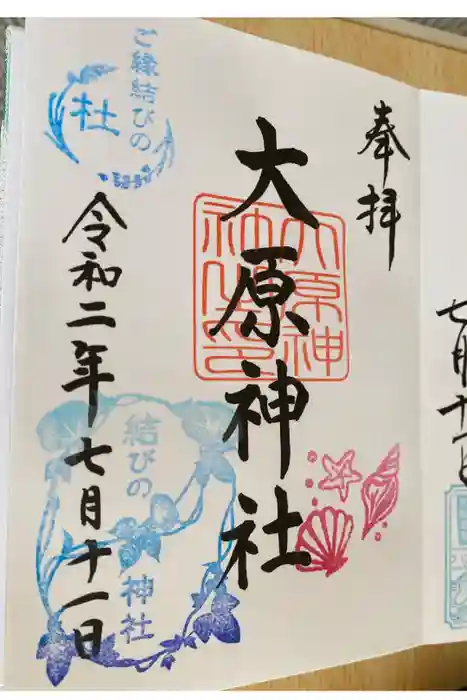 奉拝
大原神社
大原神社之印
ご縁結びの
杜
令和二年七月十一日
結びの
神社
七月十一日